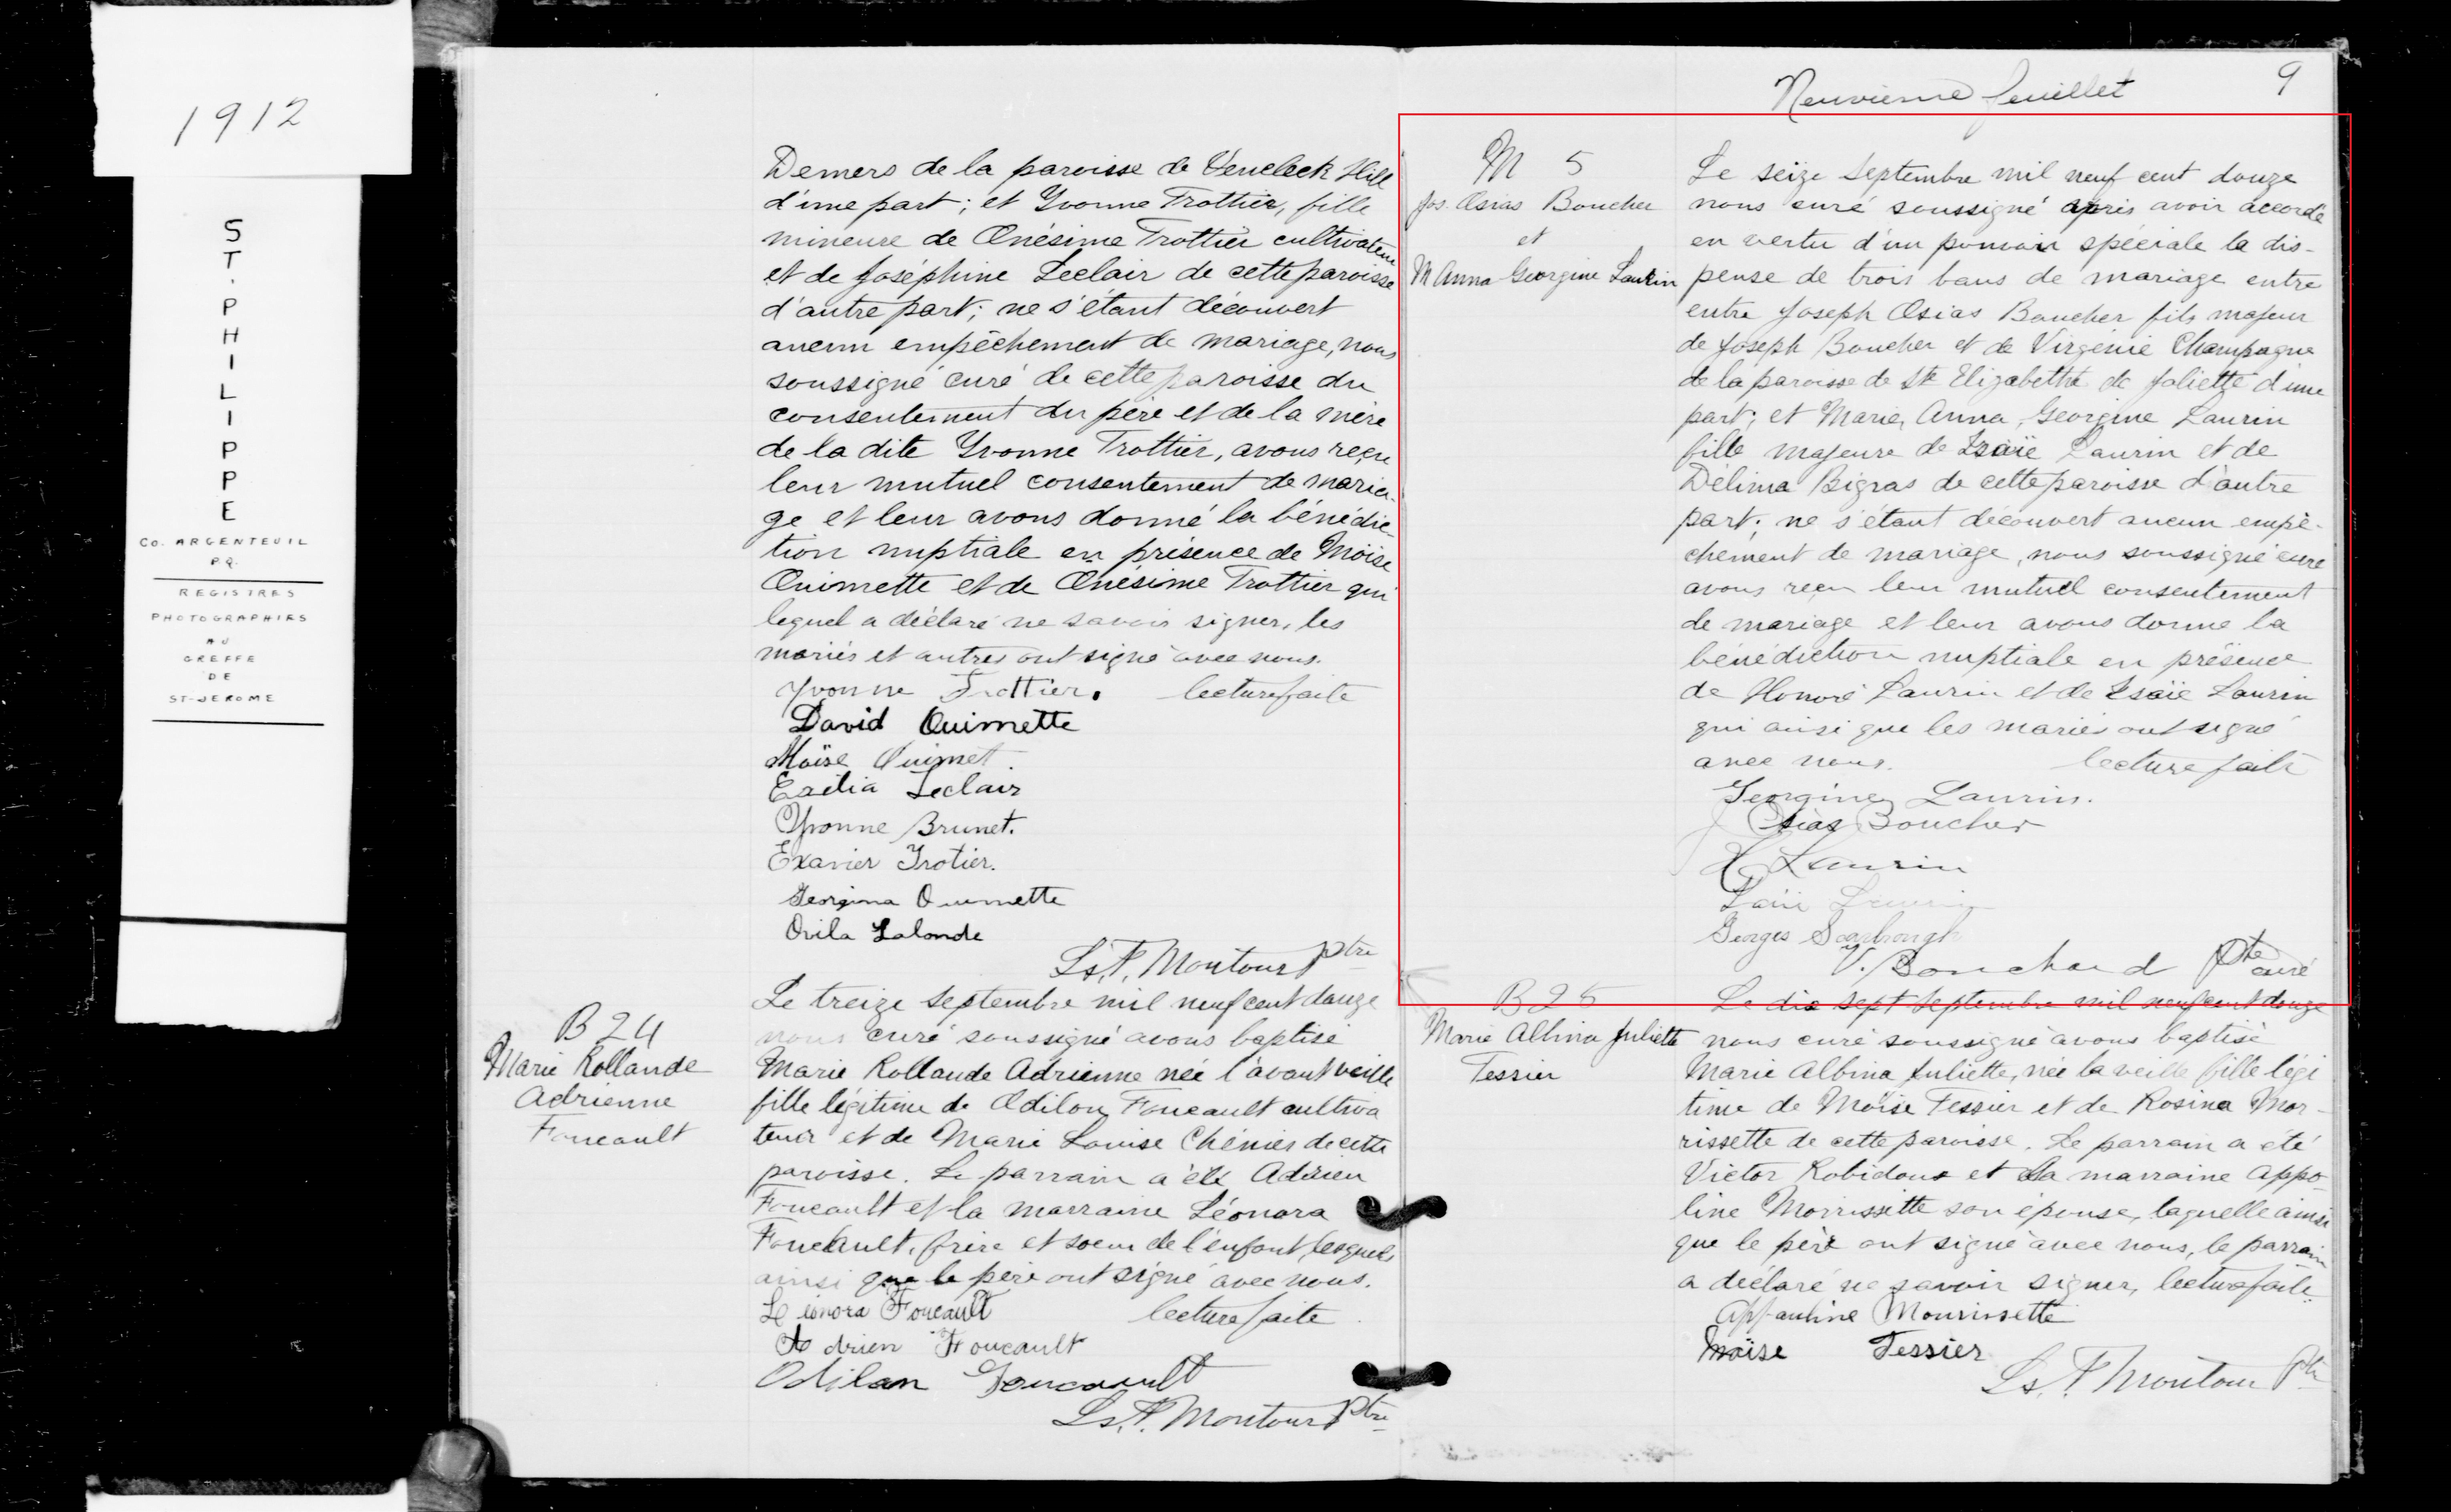 1912
ST. PHILIPPE
Co. ARGENTEUIL
P.Q.
REGISTRES
PHOTOGRAPHIES
AU
GREFFE
DE
ST-JEROME
Demers de la paroisse de Hill
d'une part; et Yvonne Trottier, fille
mineure de Onésime Trottier cultivateur
et de Joséphine Leclair de cette paroisse
d'autre part; ne s'étant découvert
aucun empêchement de mariage, nous
soussigné curé de cette paroisse du
consentement du père et de la mère
de la dite Yvonne Trottier, avons reçu
leur mutuel consentement de maria-
ge et leur avons donné la bénédic-
tion nuptiale en présence de Moïse
Ouimette et de Onésime Trottier qui
lequel a déclaré ne savoir signer, les
mariés et autres ont signé avec nous.
Yvonne Trottier. lecture faite
David Ouimette
Moïse Ouimet.
Leclair
Yvonne Brunet.
Exavier Trotier.
Georgina Ouimette
Ovila Lalonde
Ls. F. Montour Ptre
B 24
Marie Rollande
Adrienne
Foucault
Le treize septembre mil neuf cent douze
nous curé soussigné avons baptisé
Marie Rollande Adrienne née l'avant veille
fille légitime de Odilon Foucault cultiva
teur et de Marie Louise Chénier de cette
paroisse. Le parrain a été Adrien
Foucault et la marraine Léonora
Foucault, frère et soeur de l'enfant, lesquels
ainsi que le père ont signé avec nous.
Léonora Foucault lecture faite
Adrien Foucault
Odilon Foucault
Ls. F. Montour Ptre
Neuvième feuillet 9
M 5
Jos. Osias Boucher
et
M Anna Georgine Laurin
Le seize Septembre mil neuf cent douze
nous curé soussigné après avoir accordé
en vertu d'un pouvoir spéciale la dis-
pense de trois bans de mariage entre
entre Joseph Osias Boucher fils majeur
de Joseph Boucher et de Virginie Champagne
de la paroisse de Ste Elizabethe de Joliette d'une
part; et Marie, Anna, Georgine Laurin
fille majeure de Isaïe Laurin et de
Délima Bigras de cette paroisse d'autre
part; ne s'étant découvert aucun empê-
chement de mariage, nous soussigné curé
avons reçu leur mutuel consentement
de mariage et leur avons donné la
bénédiction nuptiale en présence
de Honoré Laurin et de Isaïe Laurin
qui ainsi que les mariés ont signé
avec nous. lecture faite
Georgine Laurin.
Osias Boucher
H Laurin
Isaïe Laurin
Georges Scarbrough
V. Bouchard Ptre curé
B 25
Marie Albina Juliette
Tessier
Le dix sept Septembre mil neuf cent douze
nous curé soussigné avons baptisé
Marie Albina Juliette, née la veille fille légi
time de Moïse Tessier et de Rosina Mor-
rissette de cette paroisse. Le parrain a été
Victor Robidoux et la marraine Appo-
line Morrissette son épouse, laquelle ainsi
que le père ont signé avec nous, le parrain
a déclaré ne savoir signer, lecture faite.
Appauline Mourissette
Moïse Tessier
Ls. F. Montour Ptr